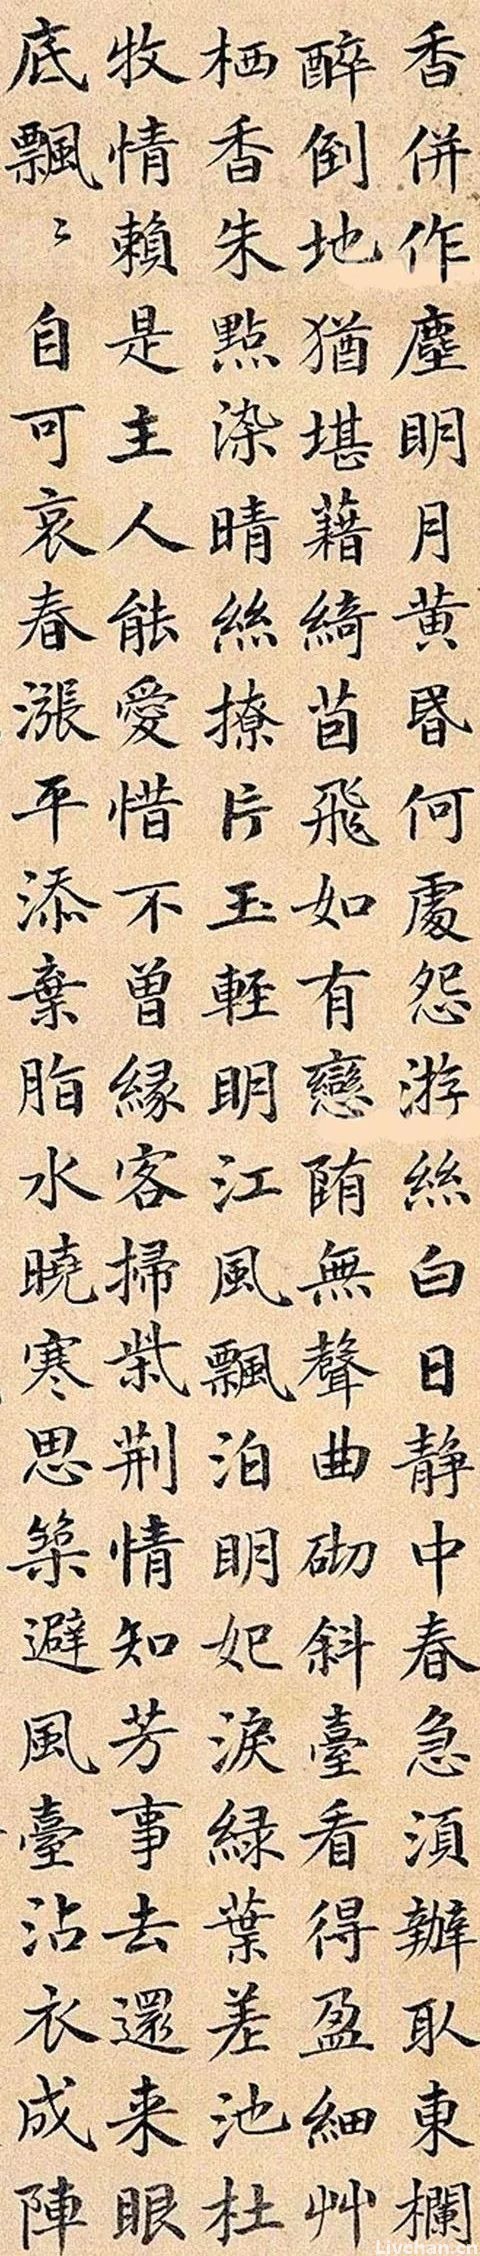 香併作塵明月黄昏何處怨游絲白日静中春急湏辦取東欄
醉倒地猶堪藉綺茵飛如有戀堕無聲曲砌斜臺看得盈細艸
栖香朱點染晴絲撩片玉輕明江風飄泊明妃淚緑葉差池杜
牧情賴是主人能愛惜不曾緣客掃柴荆情知芳事去還来眼
底飄〻自可哀春漲平添棄脂水曉寒思築避風臺沾衣成陣
Livehan.cn